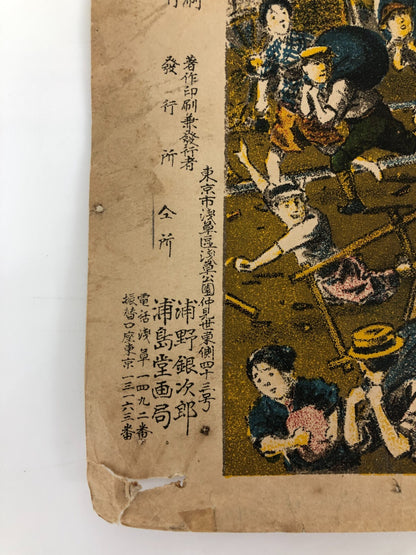 刷
行
著作印刷兼發行者
發行所
東京市浅草區浅草公園仲見世東側四十三号
浦野銀次郎
仝所
浦島堂画局
電話浅草一四九二番
振替口座東京一三一六三番